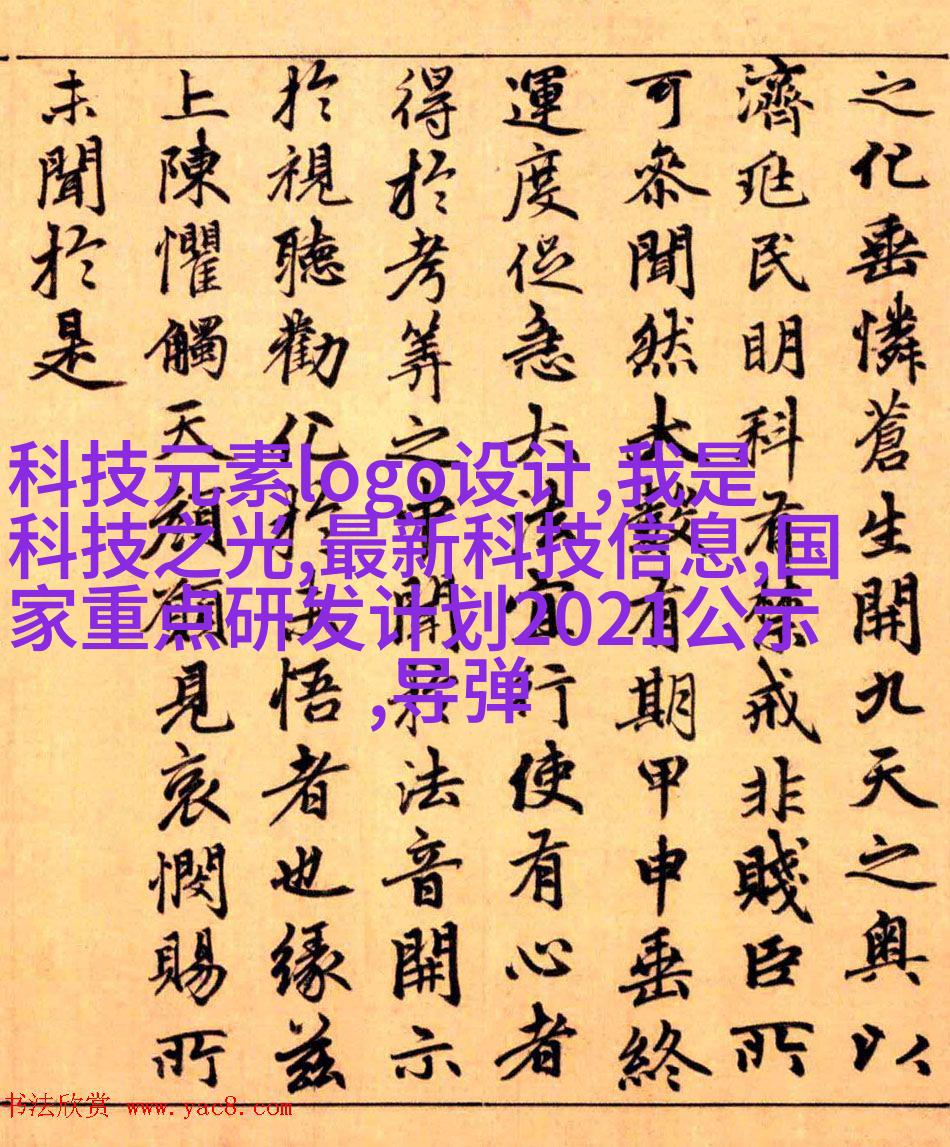 之化垂憐蒼生開九天之奧以
濟兆民明科有禁戒非賤臣所
可叅聞然大數有期甲申垂終
運度促急大法宜行使有心者
得於考筭之中聞法音開示
於視聽勸化於未悟者也緣茲
上陳懼觸天顏願見哀憫賜所
未聞於是
科技元素logo设计,我是
科技之光,最新科技信息,国
家重点研发计划2021公示
,导弹
书法欣赏 www.yac8.com